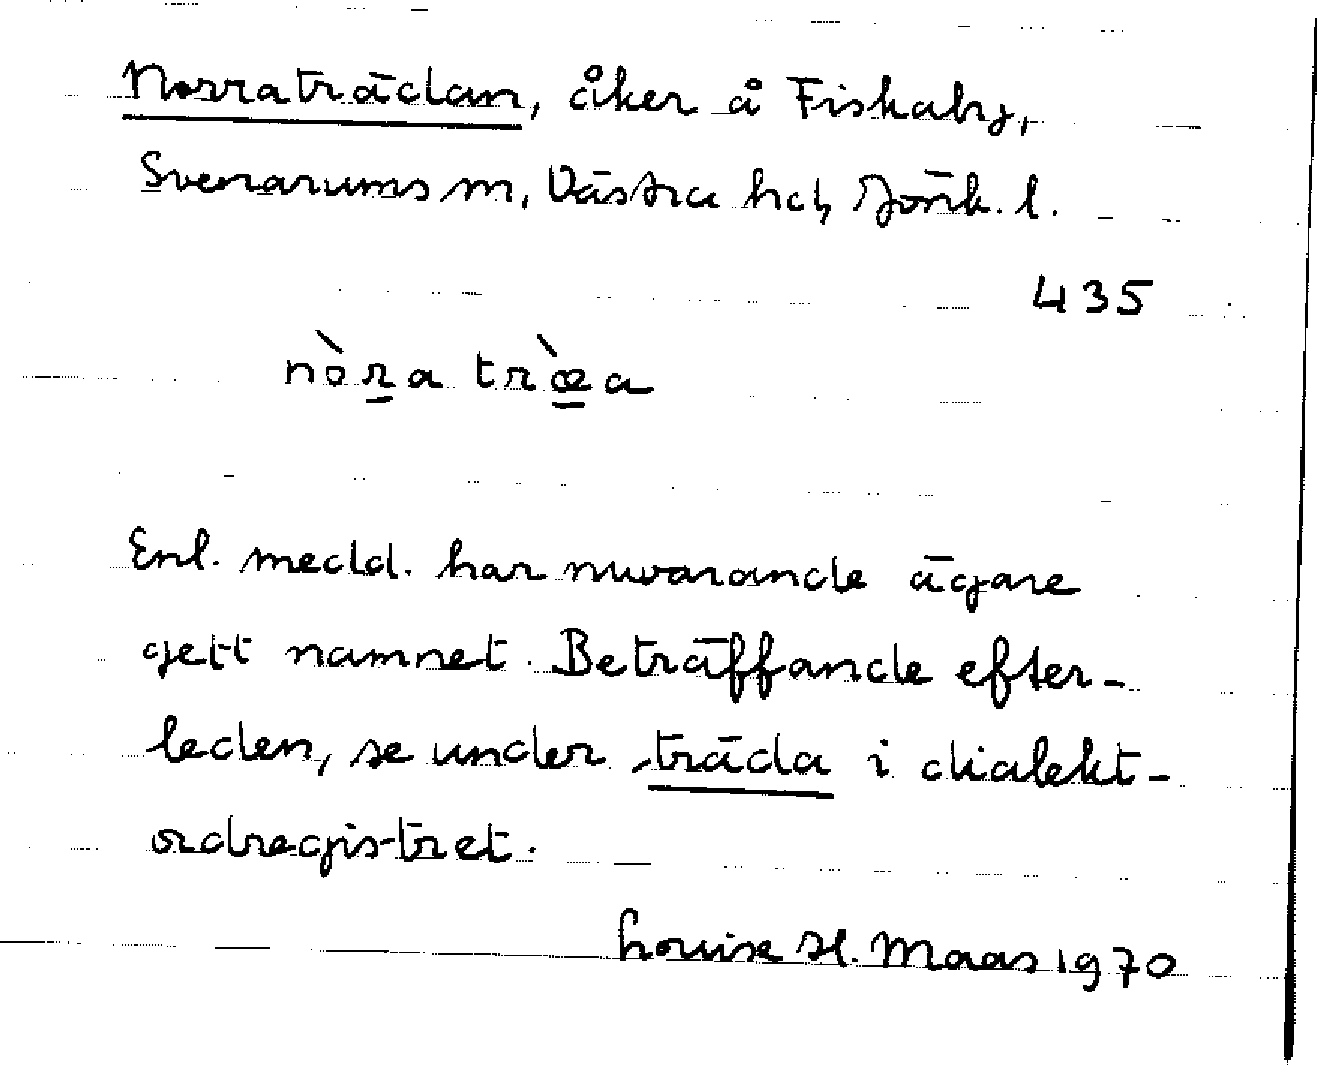 Norraträdan, åker å Fiskaby,
Svenarums sn, Västra hd, Jönk. l.
435
nòra trœ̀a
Enl. medd. har nuvarande ägare
gett namnet. Beträffande efter-
leden, se under träda i dialekt-
ordregistret.
Louise H. Maas 1970